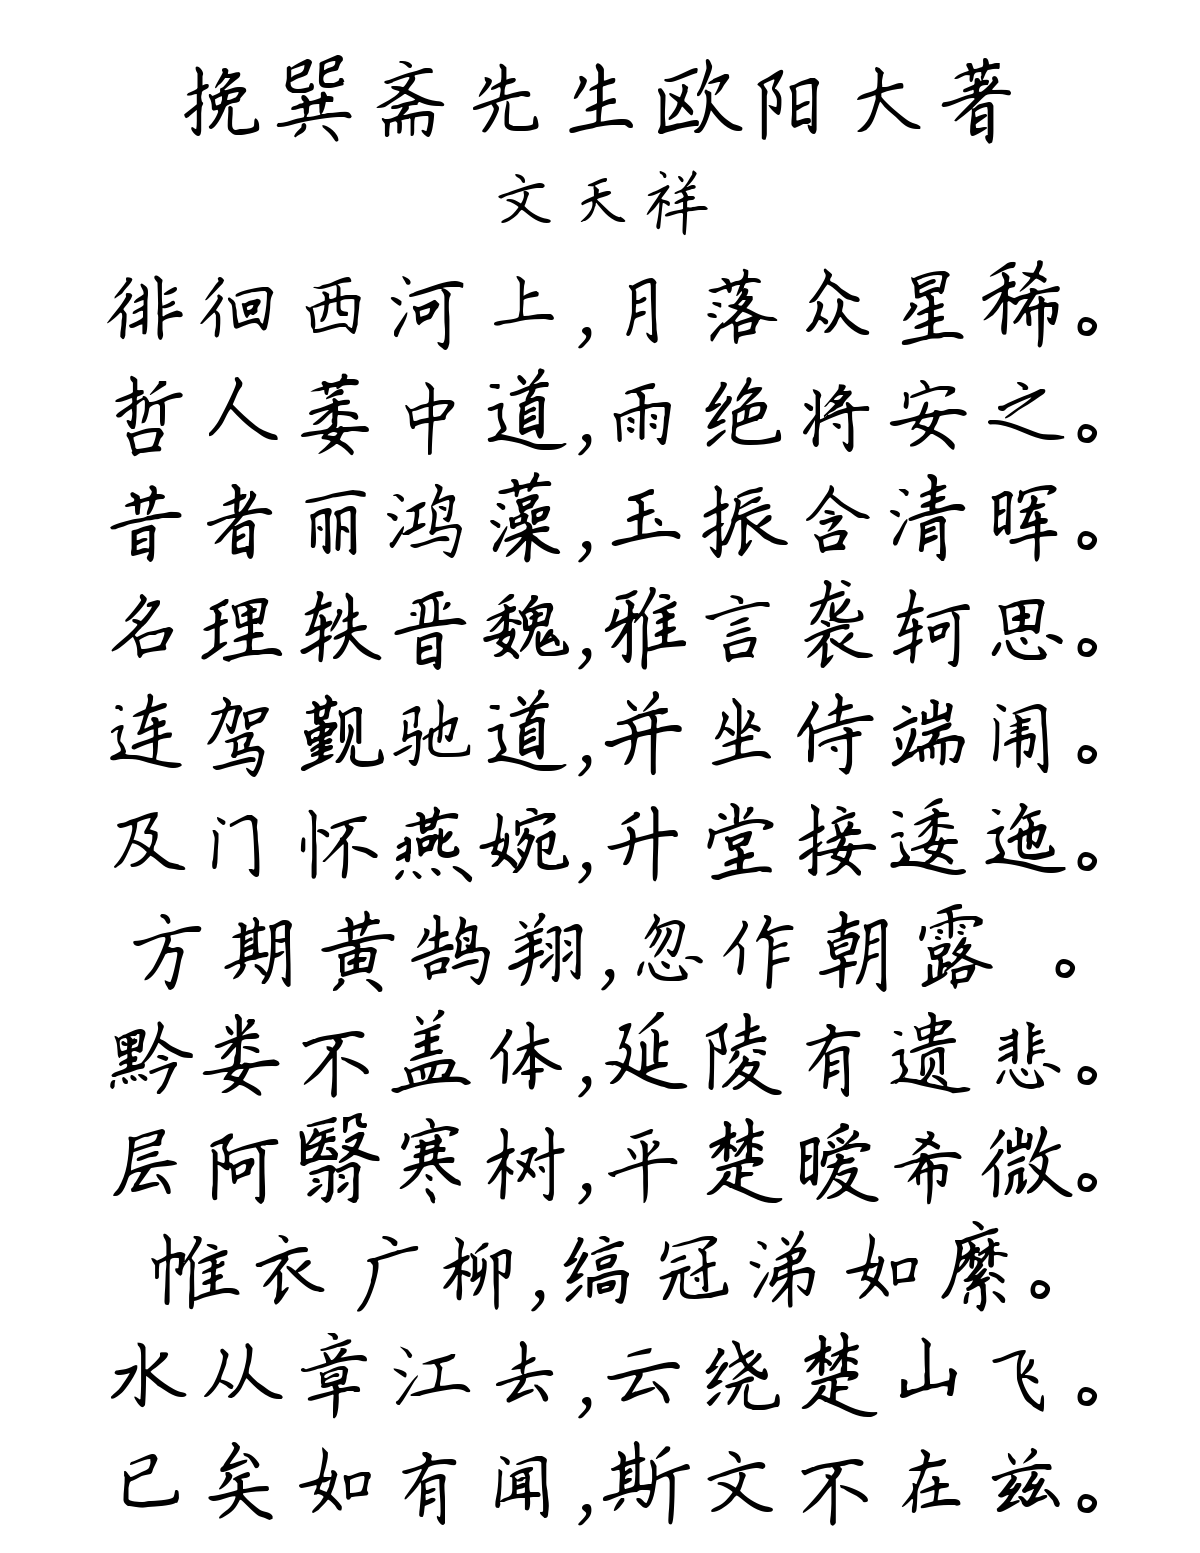 挽巽斋先生欧阳大著
文天祥
徘徊西河上,月落众星稀。
哲人萎中道,雨绝将安之。
昔者丽鸿藻,玉振含清晖。
名理轶晋魏,雅言袭轲思。
连驾觐驰道,并坐侍端闱。
及门怀燕婉,升堂接逶迤。
方期黄鹄翔,忽作朝露 。
黔娄不盖体,延陵有遗悲。
层阿翳寒树,平楚暧希微。
帷衣广柳,缟冠涕如縻。
水从章江去,云绕楚山飞。
已矣如有闻,斯文不在兹。